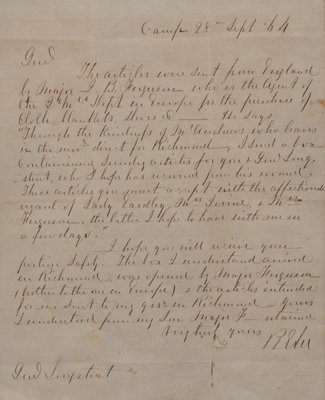 Camp 28 Sept '64
Genl
The articles were sent from England
by Major J. B. Ferguson who is the Agent of
the Q M Dept in Europe for the purchase of
Cloth, blankets, shoes &c He says,
"Through the kindness of Mr who leaves
in the direct for Richmond, I send a box
containing sundry articles for you & Genl Long-
street, who I hope has recovered from his wound.
These articles you must accept with the affectionate
regard of Lady Eardley, Mrs & Mrs
Ferguson, the latter I hope to have with me in
a few days."
I hope you will receive your
portion safely. The box I understand arrived
in Richmond, was opened by Major Ferguson
(brother to the one in Europe) & the articles intended
for me sent to my in Richmond - yours
I understand from my Son Major F retained
Very truly yours
R E Lee
Genl Longstreet